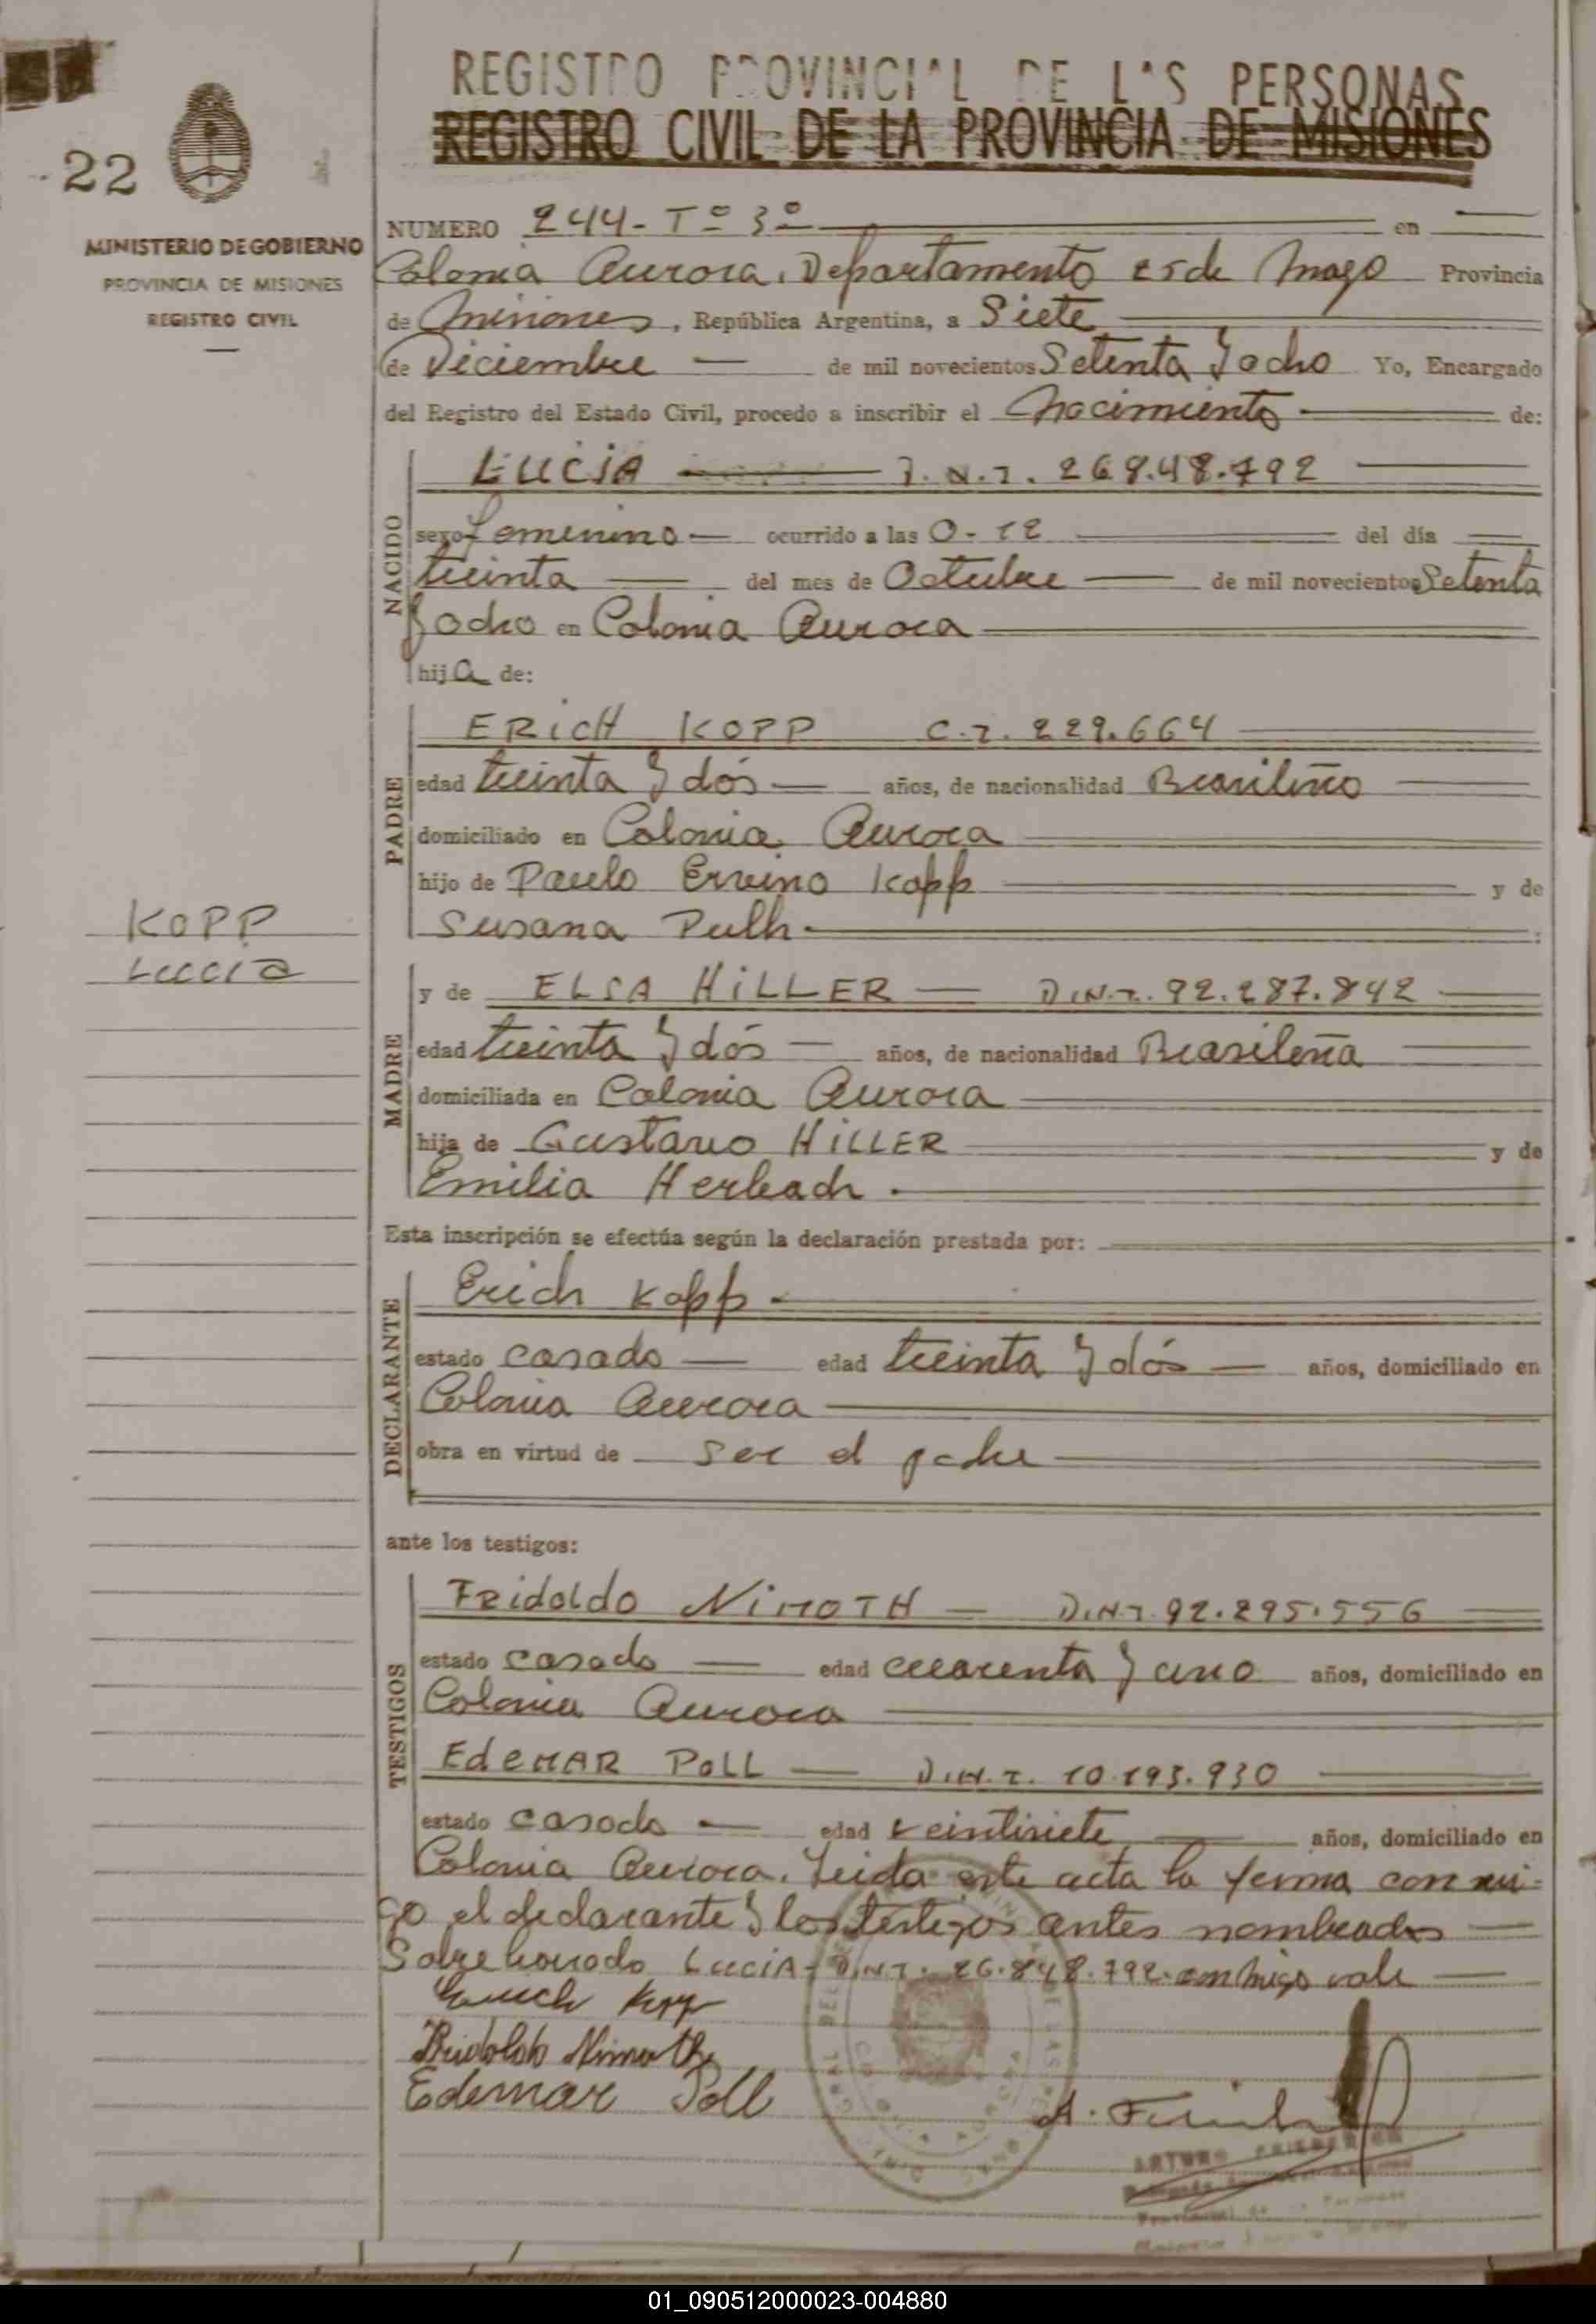 REGISTRO PROVINCIAL DE LAS PERSONAS
REGISTRO CIVIL DE LA PROVINCIA DE MISIONES
22
MINISTERIO DE GOBIERNO
PROVINCIA DE MISIONES
REGISTRO CIVIL
NUMERO 244- Tº 3º en
Colonia Aurora, Departamento 25 de Mayo Provincia
de Misiones, República Argentina, a Siete
de Diciembre de mil novecientos Setenta y ocho Yo, Encargado
del Registro del Estado Civil, procedo a inscribir el Nacimiento de:
NACIDO
LUCIA D.N.I. 26848.792
sexo femenino ocurrido a las 0-12 del día
treinta del mes de Octubre de mil novecientos Setenta
y ocho en Colonia Aurora
hija de:
PADRE
ERICH KOPP C.I. 229.664
edad treinta y dós años, de nacionalidad Brasileño
domiciliado en Colonia Aurora
hijo de Paulo Ervino Kopp y de
Susana Pulh.
KOPP
Lucia
MADRE
y de ELSA HILLER D.N.I. 92.287.842
edad treinta y dós años, de nacionalidad Brasileña
domiciliada en Colonia Aurora
hija de Gustavo HILLER y de
Emilia Herbach.
Esta inscripción se efectúa según la declaración prestada por:
DECLARANTE
Erich Kopp.
estado casado edad treinta y dós años, domiciliado en
Colonia Aurora
obra en virtud de ser el padre
ante los testigos:
TESTIGOS
Fridoldo NIMOTH D.N.I. 92.295.556
estado casado edad cuarenta y uno años, domiciliado en
Colonia Aurora
EdEMAR POLL D.N.I. 10.193.930
estado casado edad veintisiete años, domiciliado en
Colonia Aurora. Leida este acta la firma conmi-
go el declarante y los testigos antes nombrados
Sobre borrado LUCIA- D.N.I. 26.848.792. vale
Erich Kopp
Fridoldo Nimoth
Edemar Poll
01_090512000023-004880